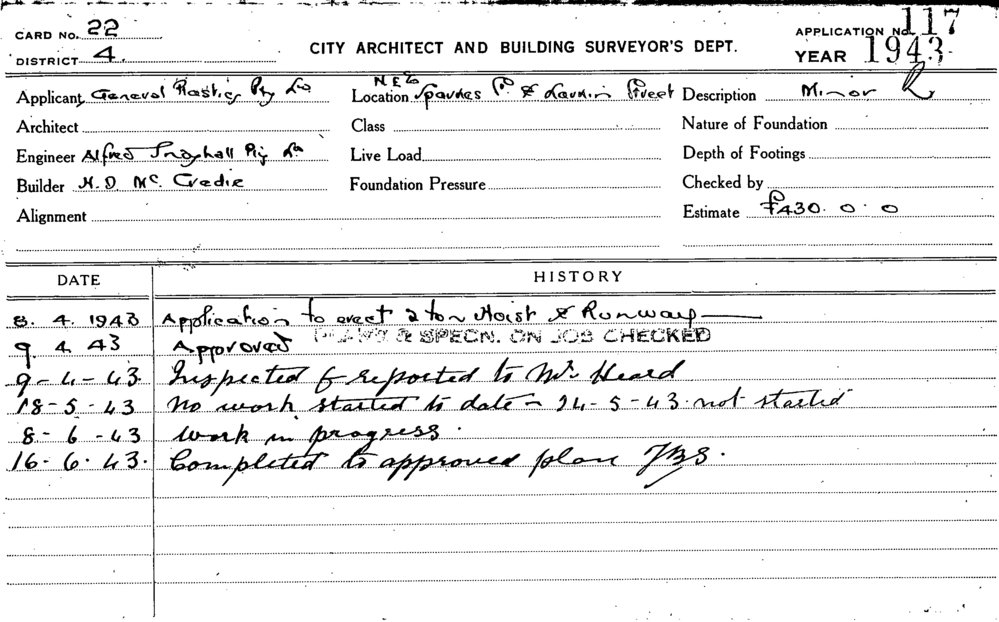 CARD No. 22
DISTRICT 4.
CITY ARCHITECT AND BUILDING SURVEYOR'S DEPT.
APPLICATION No. 117
YEAR 1943
Applicant General Plastics Pty Ld
Location Sparkes St & Larkin Street
Description Minor
Architect
Class
Nature of Foundation
Engineer Alfred Pty Ld
Live Load
Depth of Footings
Builder H. D. Mc. Credie
Foundation Pressure
Checked by
Alignment
Estimate £430. 0. 0
DATE HISTORY
8. 4. 1943 Application to erect 2 ton Hoist & Runway
9. 4. 43 Approved PLANS & SPECN. ON JOB CHECKED
9-4-43. Inspected & reported to Mr Heard
18-5-43 No work started to date - 24-5-43 not started
8-6-43 Work in progress.
16.6.43. Completed to approved plan